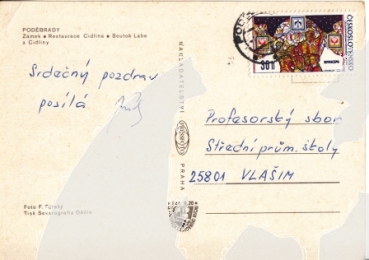 PODĚBRADY
Zámek • Restaurace Cidlina • Soutok Labe
a Cidliny
Srdečný pozdrav
posílá
NAKLADATELSTVÍ
PRAHA
30 h
ČESKOSLOVENSKO
Profesorský sbor
Střední prům. školy
25801 VLAŠIM
Foto P.
Tisk